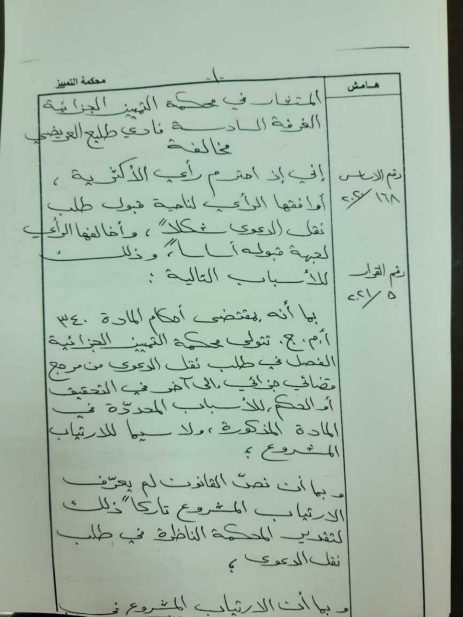 محكمة التمييز
-١-
هامش
المستشار في محكمة التمييز الجزائية
الغرفة السادسة فادي طليع العريضي
مخالفة
إني إذ احترم رأي الأكثرية ،
أوافقها الرأي لناحية قبول طلب
نقل الدعوى شكلاً ، وأخالفها الرأي
لجهة قبوله أساساً ، وذلك
للأسباب التالية :
رقم الاساس
١٦٨/٢٠٢٠
رقم القرار
٥/٢٠٢١
بما أنه بمقتضى أحكام المادة ٣٤٠
أ.م.ج. تتولى محكمة التمييز الجزائية
الفصل في طلب نقل الدعوى من مرجع
قضائي جزائي ، إلى آخر في التحقيق
أو الحكم ، للأسباب المحددّة في
المادة المذكورة ، ولا سيما للارتياب
المشروع ؛
وبما أن نصّ القانون لم يعرّف
الارتياب المشروع تاركاً ذلك
لتقدير المحكمة الناظرة في طلب
نقل الدعوى ؛
وبما أن الارتياب المشروع في